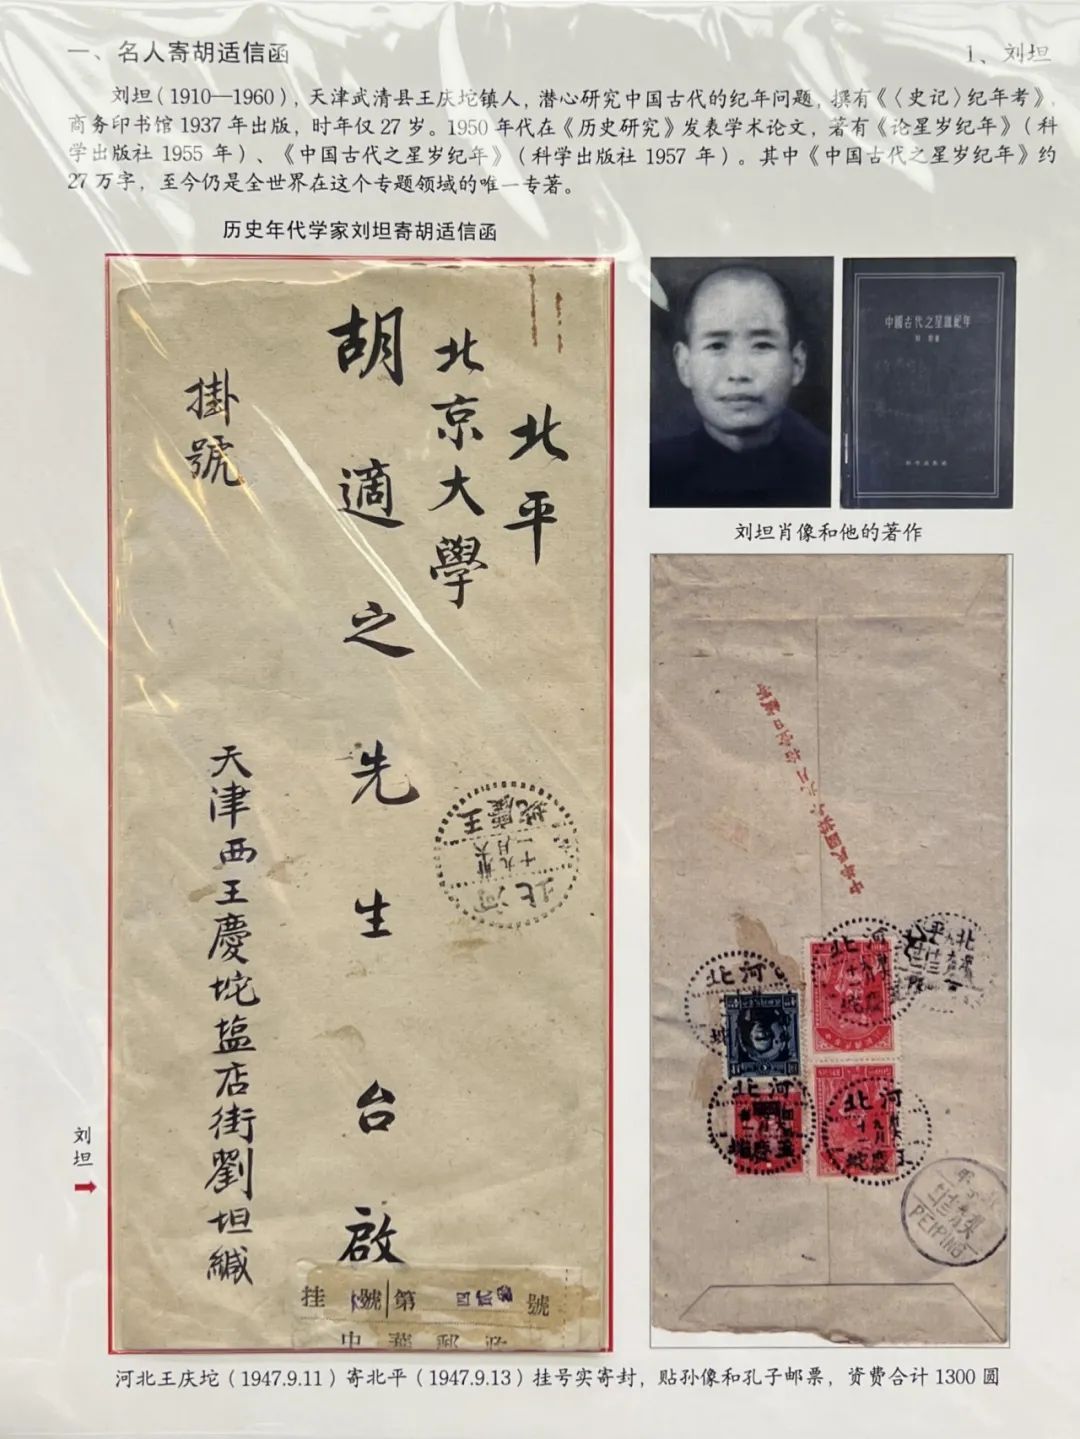 一、名人寄胡适信函
1、刘坦
刘坦（1910—1960），天津武清县王庆坨镇人，潜心研究中国古代的纪年问题，撰有《〈史记〉纪年考》，
商务印书馆 1937 年出版，时年仅 27 岁。1950 年代在《历史研究》发表学术论文，著有《论星岁纪年》（科
学出版社 1955 年）、《中国古代之星岁纪年》（科学出版社 1957 年）。其中《中国古代之星岁纪年》约
27 万字，至今仍是全世界在这个专题领域的唯一专著。
历史年代学家刘坦寄胡适信函
北平
北京大學
胡適之先生台啟
掛號
天津西王慶坨盐店街劉坦緘
王慶坨
十一
九月
河北
挂號第
號
中華郵政
刘坦
中國古代之星歲紀年
刘坦肖像和他的著作
河北
河北
河北
河北
北平
PEIPING
河北王庆坨（1947.9.11）寄北平（1947.9.13）挂号实寄封，贴孙像和孔子邮票，资费合计 1300 圆